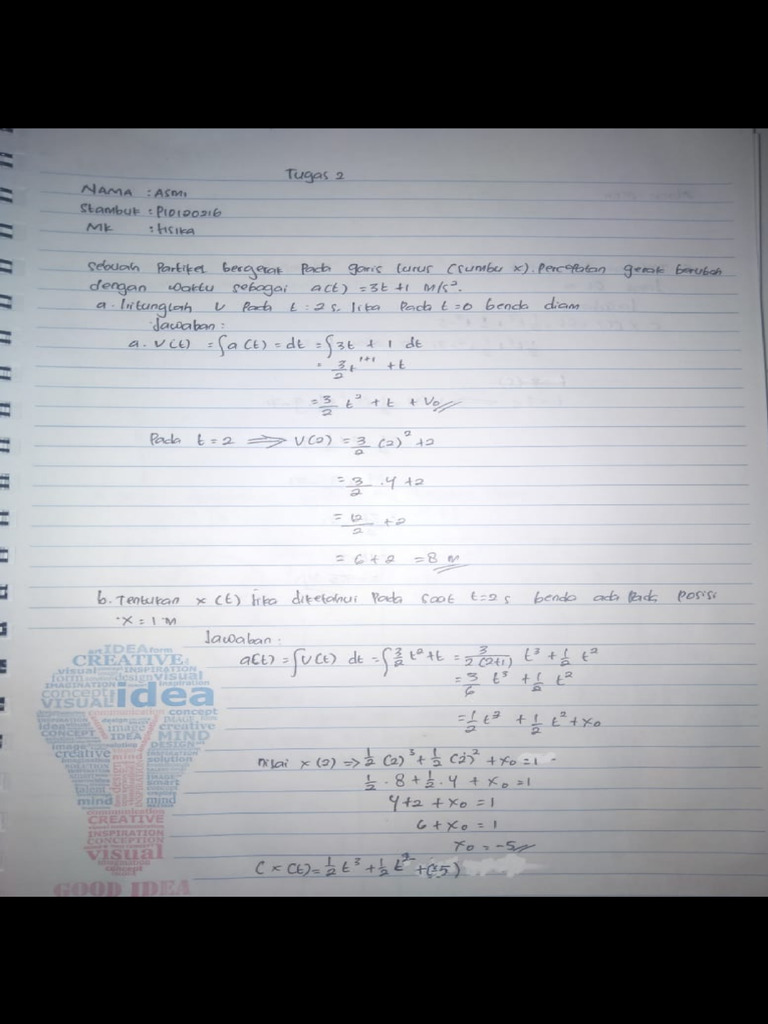 Tugas 2
NAMA : ASMI
Stambuk : P10120216
MK : fisika
sebuah Partikel bergerak Pada garis lurus (sumbu x). Percepatan gerak berubah
dengan waktu sebagai a(t) = 3t +1 M/s².
a. hitunglah V Pada t = 2 s. Jika Pada t=0 benda diam
Jawaban :
a. V(t) = ∫a(t) = dt = ∫3t + 1 dt
= 3/2 t¹⁺¹ + t
= 3/2 t² + t + V₀
Pada t = 2 ⟹ V(2) = 3/2 (2)² + 2
= 3/2 . 4 + 2
= 12/2 + 2
= 6 + 2 = 8 m
b. Tentukan x (t) Jika diketahui Pada saat t=2 s benda ada Pada posisi
x = 1 M
Jawaban :
a(t) = ∫V(t) dt = ∫3/2 t² + t = 3/2(2+1) t³ + 1/2 t²
= 3/6 t³ + 1/2 t²
= 1/2 t³ + 1/2 t² + x₀
Nilai x (2) ⇒ 1/2 (2)³ + 1/2 (2)² + x₀ = 1
1/2 . 8 + 1/2 . 4 + x₀ = 1
4 + 2 + x₀ = 1
6 + x₀ = 1
x₀ = -5
( x (t) = 1/2 t³ + 1/2 t² + (-5)
art IDEA form
CREATIVE
visual inspiration
design visual
IMAGINATION
concept
VISUAL idea
CONCEPT
image creative
IDEA MIND
creative DESIGN
solution
talent
mind mind
communication
CREATIVE
INSPIRATION
CONCEPTION
visual
communication
concept
GOOD IDEA